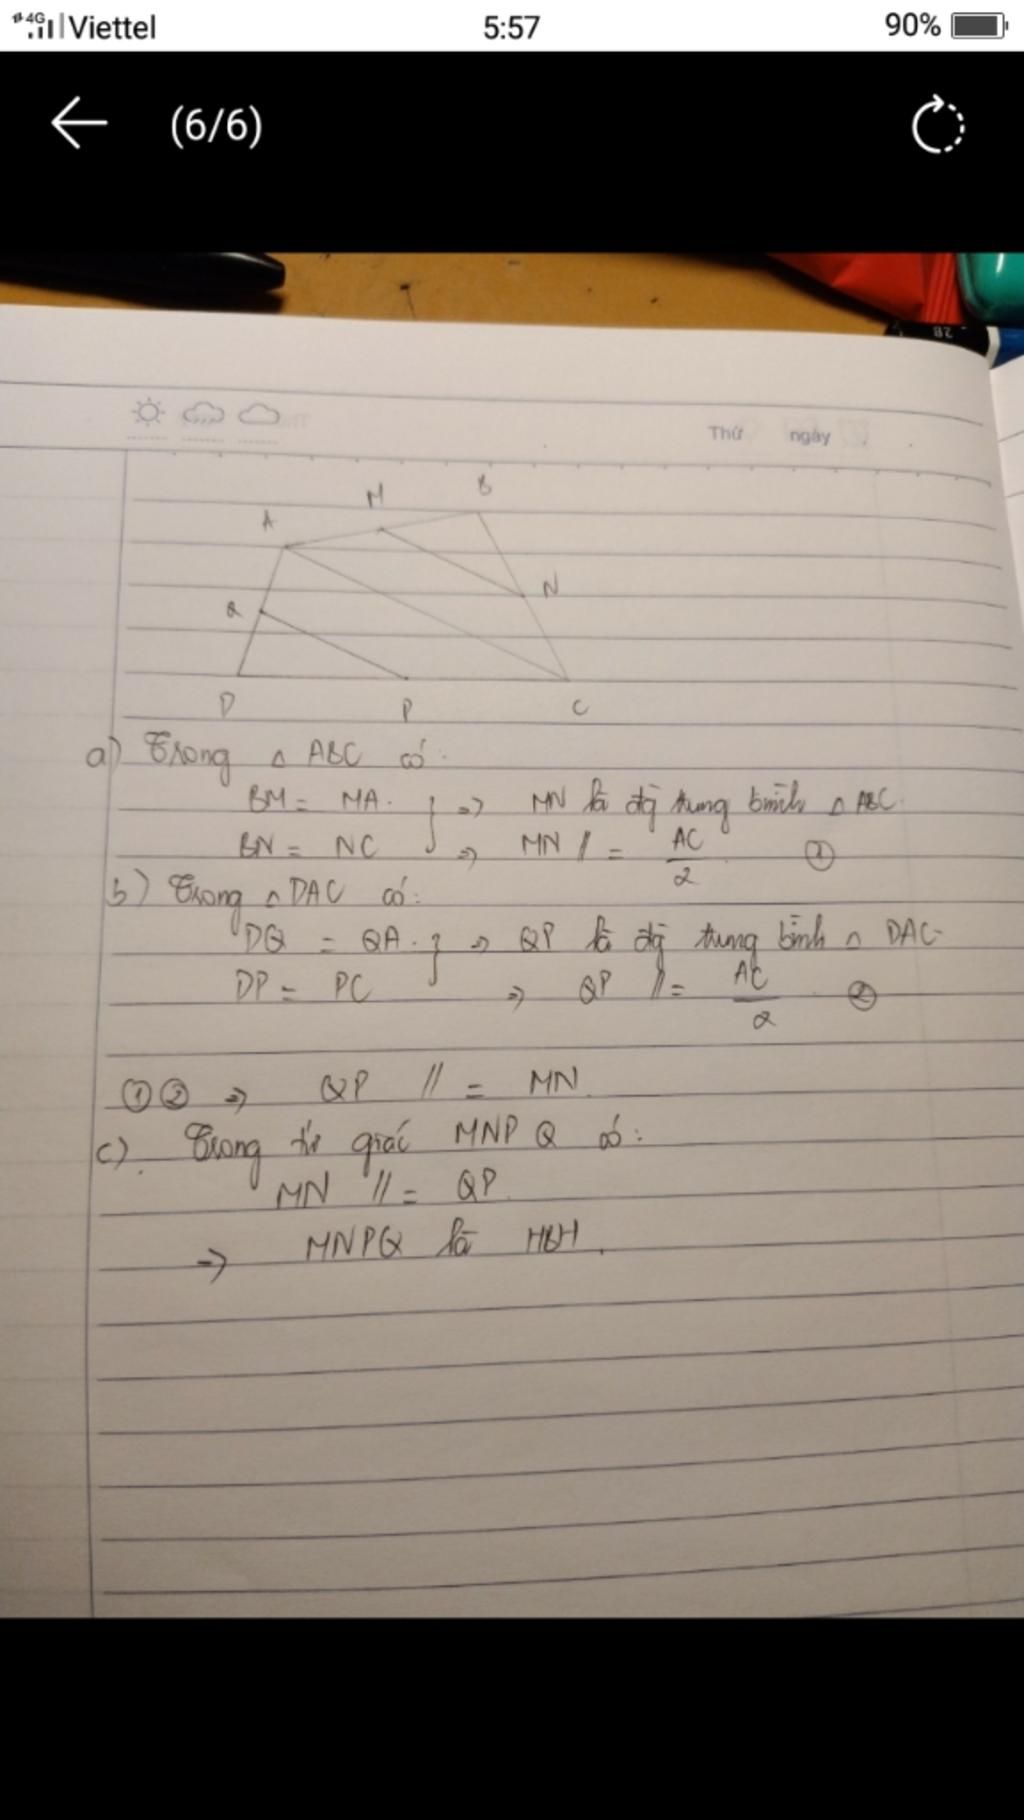 4G Viettel 5:57 90%
(6/6)
2B
Thứ ngày
M B
A
N
Q
D P C
a) Trong △ ABC có:
BM = MA } => MN là đg trung bình △ ABC
BN = NC => MN // = AC/2 ①
b) Trong △ DAC có:
DQ = QA } => QP là đg trung bình △ DAC
DP = PC => QP // = AC/2 ②
① ② => QP // = MN
c) Trong tứ giác MNPQ có:
MN // = QP
=> MNPQ là HBH.